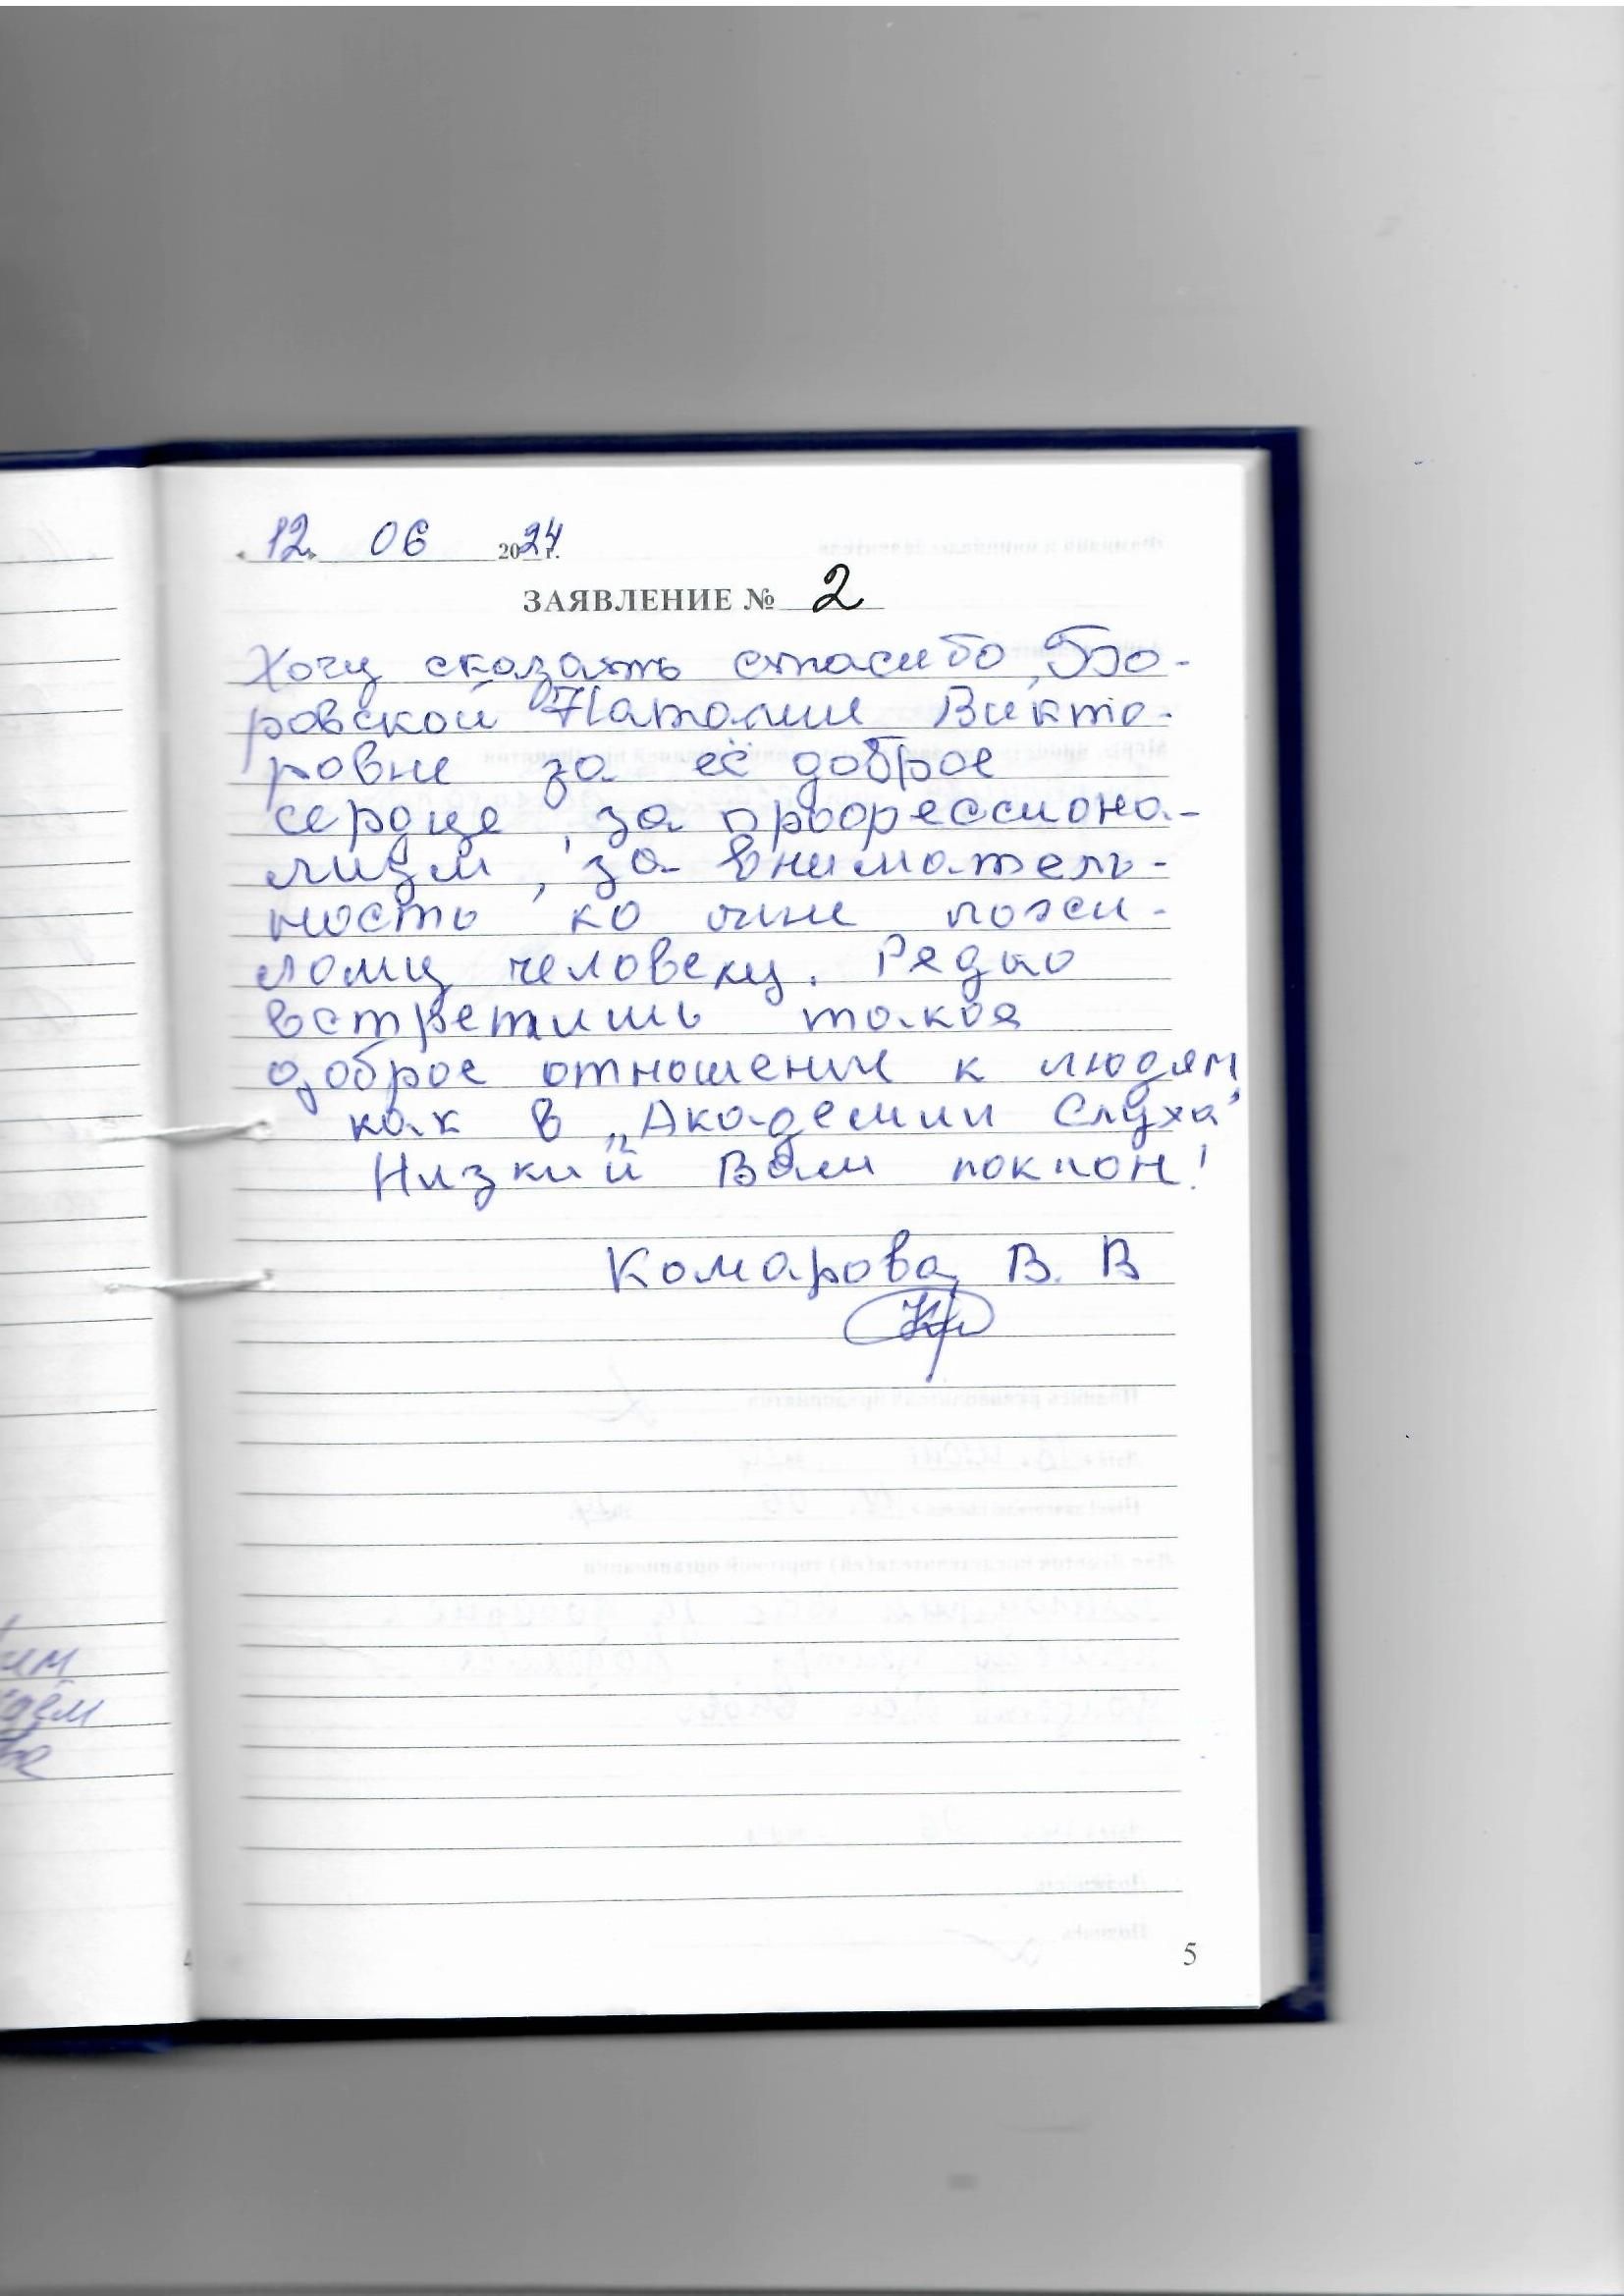 «12» 06 2024 г.
ЗАЯВЛЕНИЕ № 2
Хочу сказать спасибо, Бо-
ровской Наталии Викто-
ровне за её доброе
сердце, за профессиона-
лизм, за вниматель-
ность ко мне пожи-
лому человеку. Редко
встретишь такое
доброе отношение к людям
как в "Академии Слуха"
Низкий Вам поклон!
Комарова В. В
5